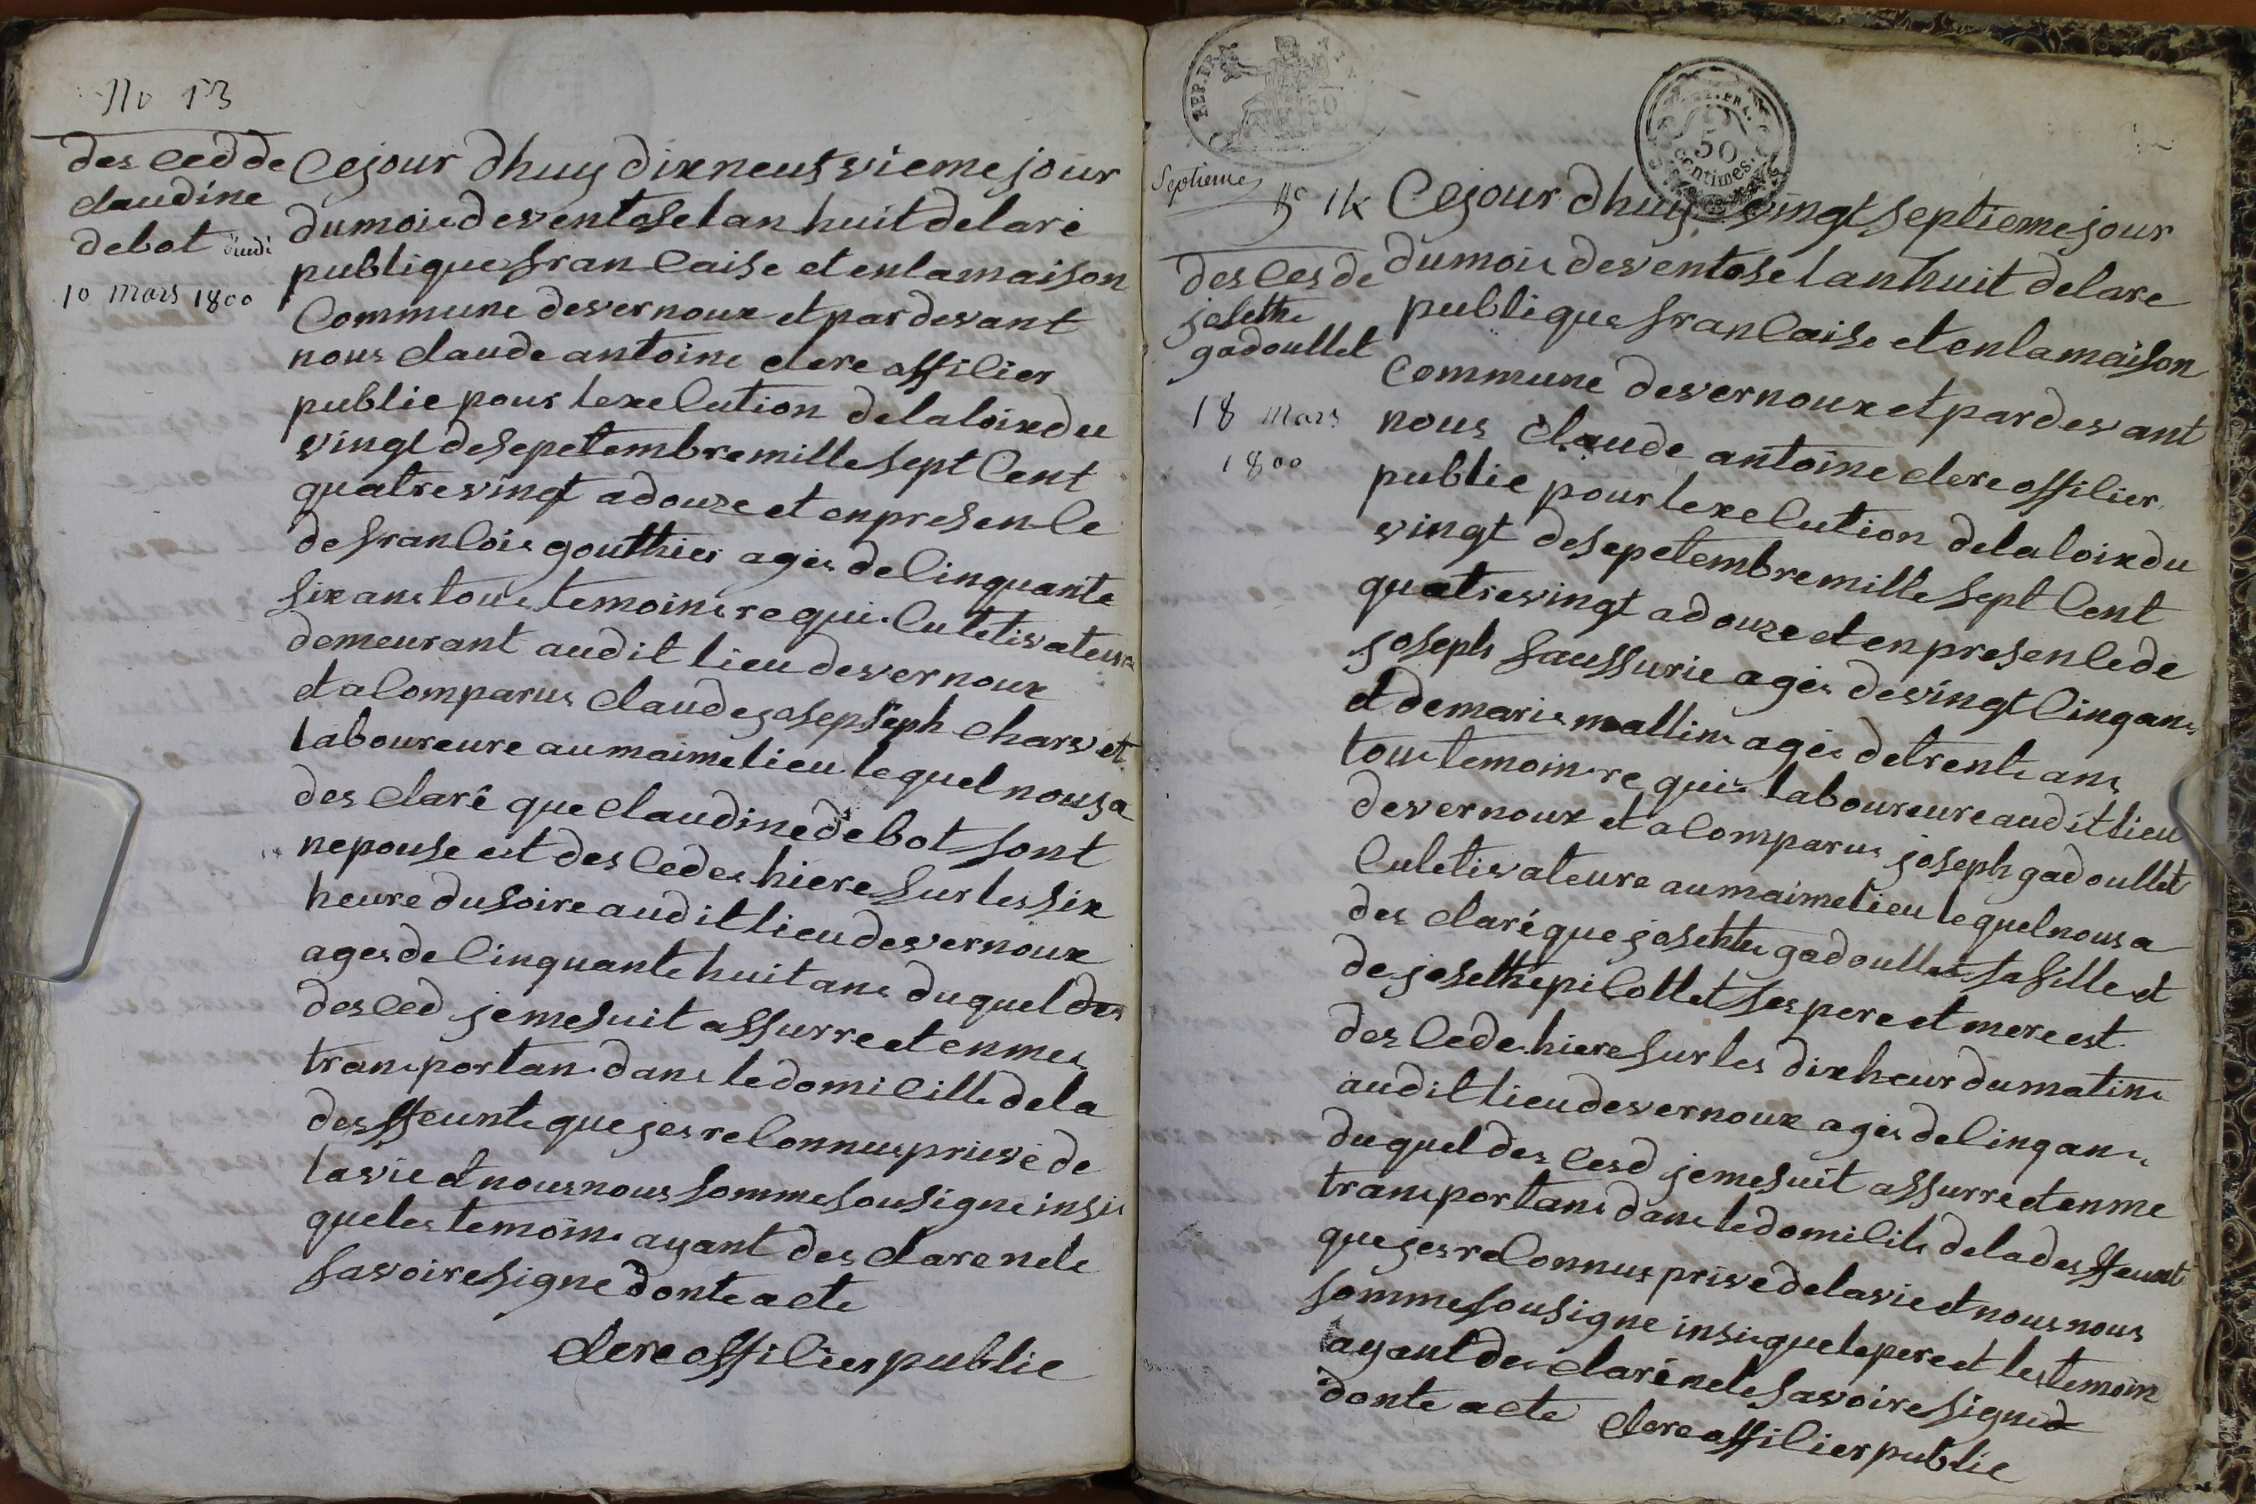 No 13
des ced de
claudine
debot
10 mars 1800
Cejour dhuy dixneufvieme jour
dumois deventose lan huit delaré
publique francaise et enlamaison
Commune devernoux et pardevant
nous claude antoine clere officier
public pour lexecution delaloixdu
vingt desepetembre mille sept Cent
quatrevingt adouze et enpresence
de francois gouthier agés de Cinquante
sixans tous temoins requis Culetivateure
demeurant audit lieu devernoux
et a Comparus Claude josepseph charvet
laboureure aumaime lieu lequel nousa
des claré que claudine debot sont
nepouse est des cedes hiere sur les six
heure dusoire audit lieu devernoux
ages de Cinquante huit ans duquel des
desced jemesuit assurre et enmes
transportan dans ledomicille dela
desffeunte que jesreconnus privé de
lavie et nousnous sommesousigne insis
queles temoins ayant des clare nele
savoire signe donte acte
clere officier public
REP. FRA.
50
REP. FRA.
50
centimes.
Septieme
No 14
des ces de
josethe
gadoullet
18 mars
1800
Cejour dhuy vingt septieme jour
dumois deventose lanhuit delare
publique francaise et enlamaison
Commune devernoux et pardevant
nous claude antoine clere officier
public pour lexecution delaloixdu
vingt desepetembre mille sept Cent
quatrevingt adouze et enpresencede
joseph saussurie agés devingt Cinqans
et demarie mallin agés detrente ans
tous temoins requis laboureure audit lieu
devernoux et a Comparus joseph gadoullet
Culetivateure aumaime lieu lequel nous a
des claré que josethte gadoullet sa fille et
de josethe picollet ses pere et mere est
des cede hiere sur les dixheur dumatin
audit lieu devernoux agés de Cinqans
duquel des cesd jemesuit assurre et enme
transportans dans ledomicile delades ffeunt
que jesreconnus privé delavie et nousnous
sommesousigne insis quelepere et les temoin
ayant des claré nele savoire signe d
donte acte clere officier public